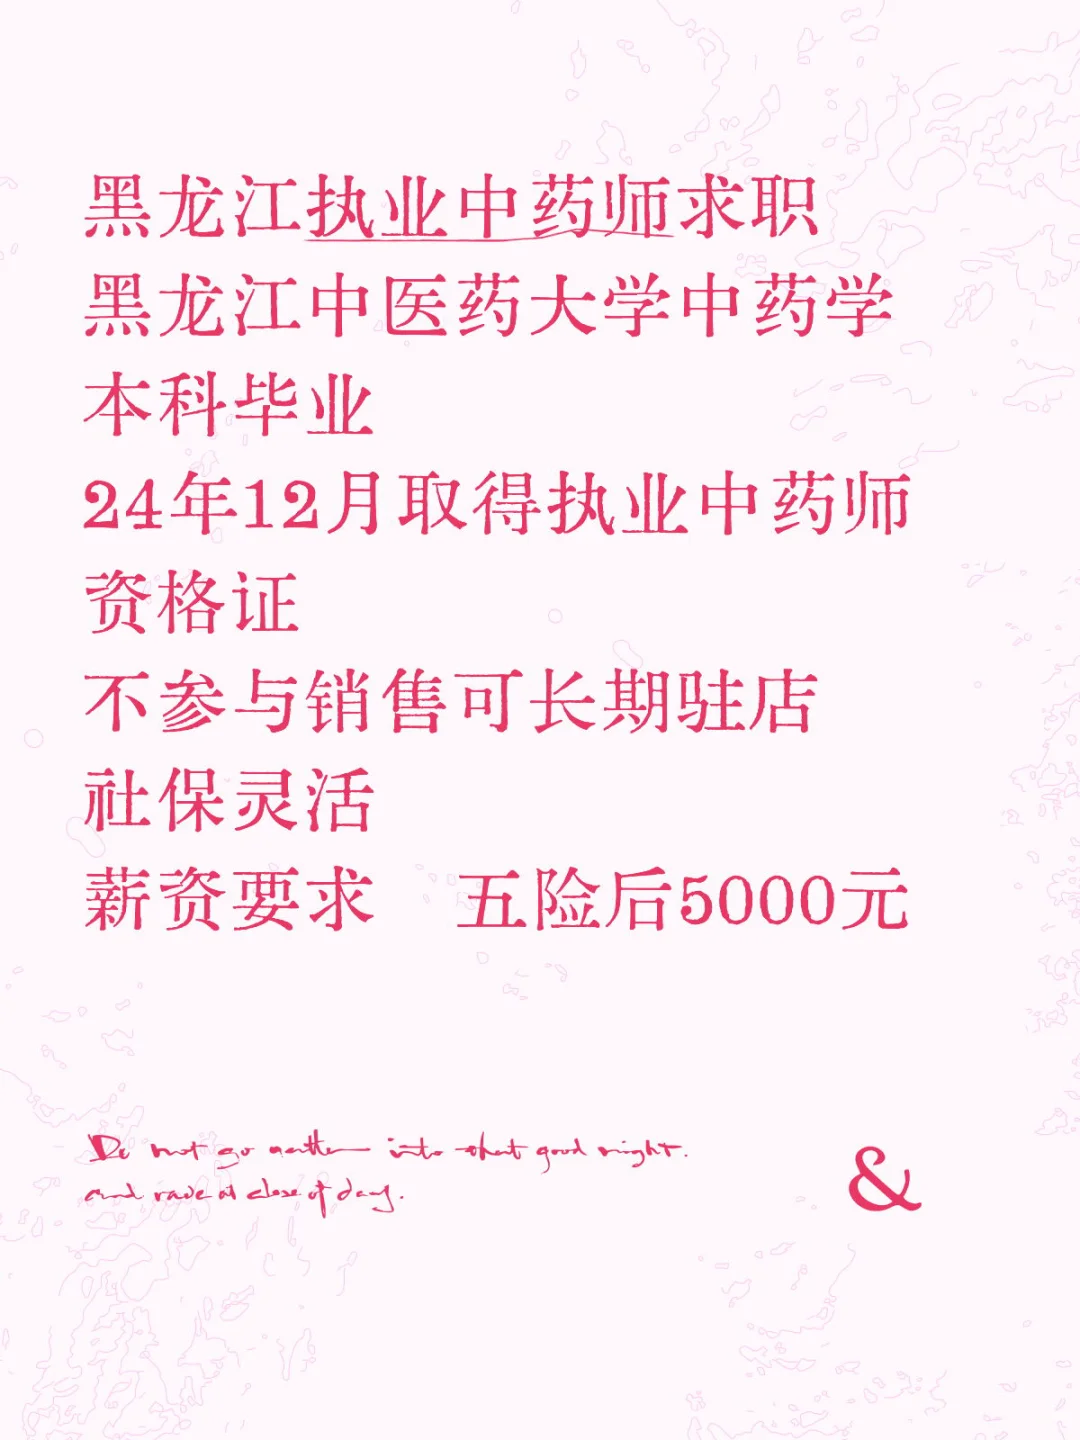 黑龙江执业中药师求职
黑龙江中医药大学中药学
本科毕业
24年12月取得执业中药师
资格证
不参与销售可长期驻店
社保灵活
薪资要求 五险后5000元
Do not go gentle into that good night.
and rave at close of day.
&